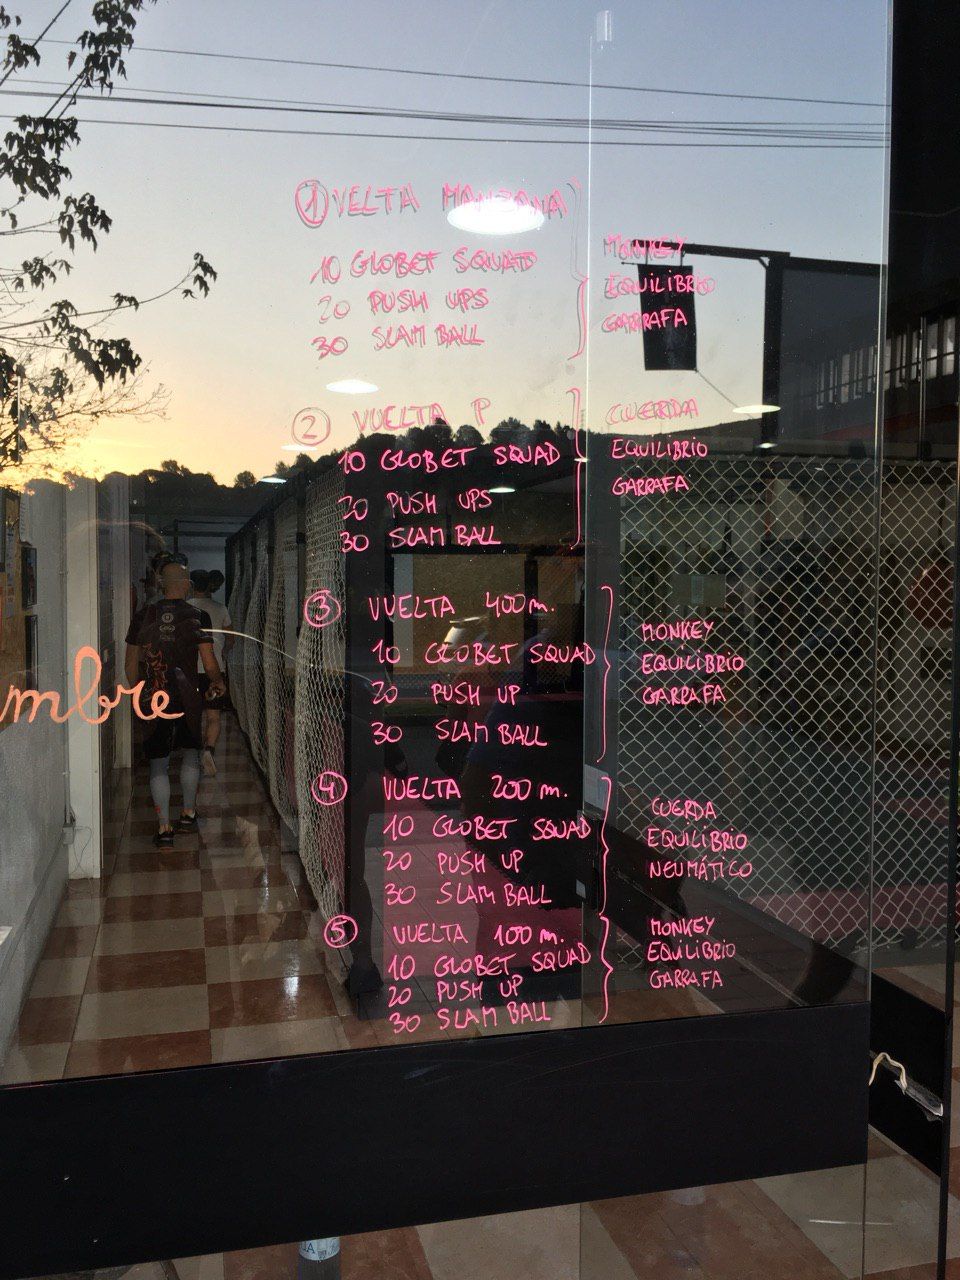 1 VELTA MANZANA
10 GLOBET SQUAD
20 PUSH UPS
30 SLAM BALL
MONKEY
EQUILIBRIO
GARRAFA
2 VUELTA P
10 GLOBET SQUAD
20 PUSH UPS
30 SLAM BALL
CUERDA
EQUILIBRIO
GARRAFA
3 VUELTA 400 m.
10 GLOBET SQUAD
20 PUSH UP
30 SLAM BALL
MONKEY
EQUILIBRIO
GARRAFA
4 VUELTA 200 m.
10 GLOBET SQUAD
20 PUSH UP
30 SLAM BALL
CUERDA
EQUILIBRIO
NEUMÁTICO
5 VUELTA 100 m.
10 GLOBET SQUAD
20 PUSH UP
30 SLAM BALL
MONKEY
EQUILIBRIO
GARRAFA
mbre